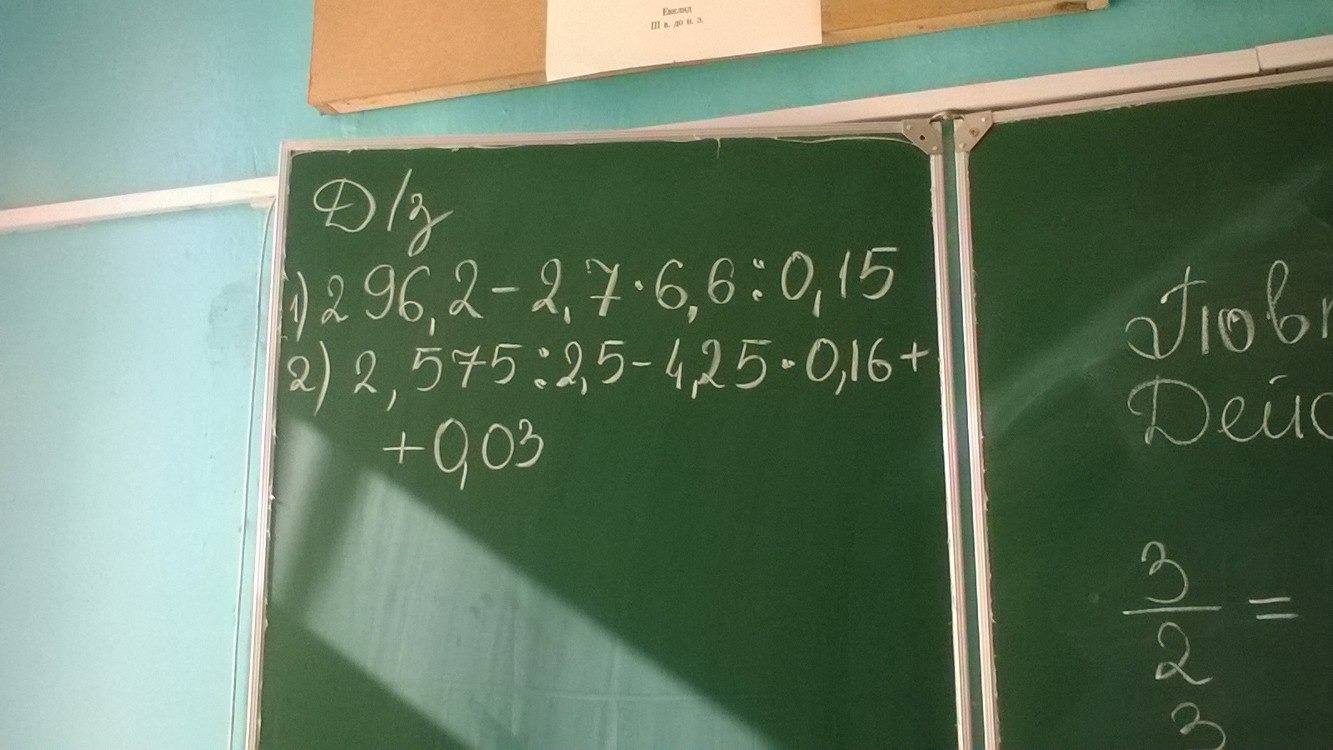 Евклид
III в. до н. э.
Д/з
1) 296,2 - 2,7 · 6,6 : 0,15
2) 2,575 : 2,5 - 4,25 · 0,16 +
+ 0,03
3
2
=
3